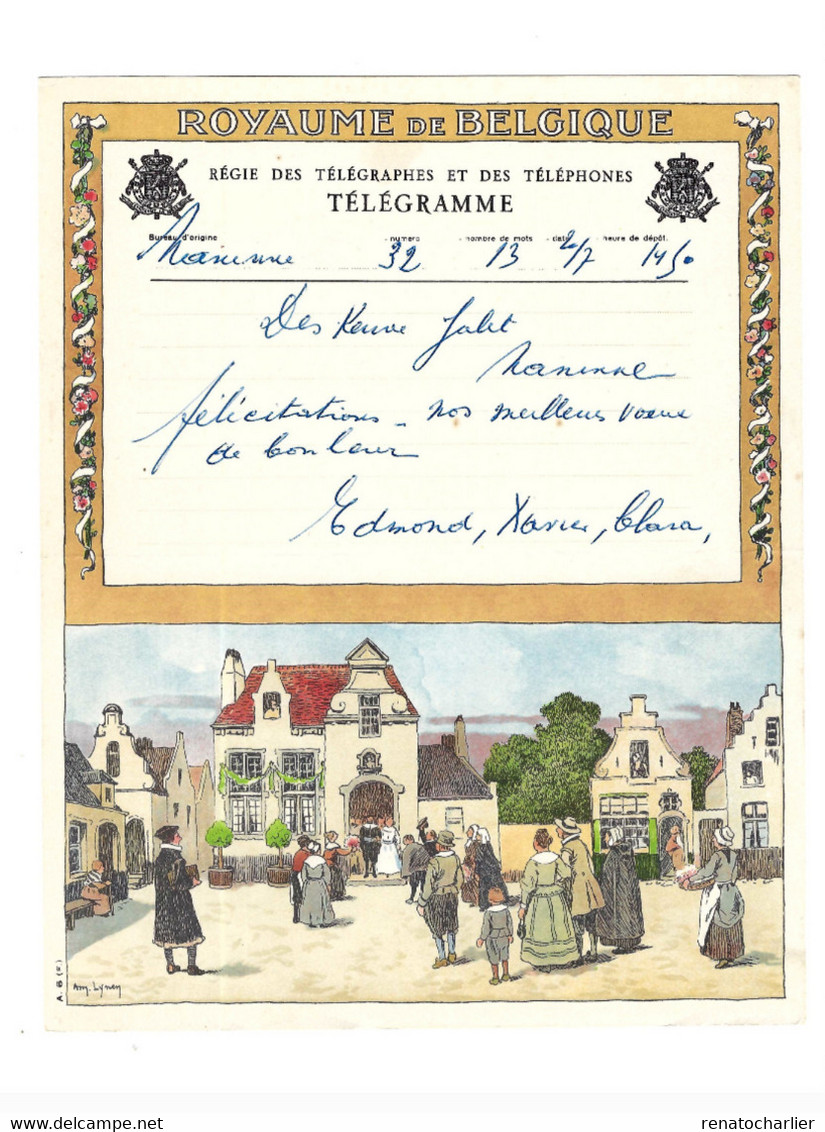 ROYAUME DE BELGIQUE
RÉGIE DES TÉLÉGRAPHES ET DES TÉLÉPHONES
TÉLÉGRAMME
Bureau d'origine numéro nombre de mots date heure de dépôt.
Naninne 32 13 2/7 1450
Des Keuve Jalet
Naninne
félicitations - nos meilleurs voeux
de bonheur
Edmond, Xavier, Clara,
A. 6 (F.)
Am. Lynen
delcampe.net
renatocharlier